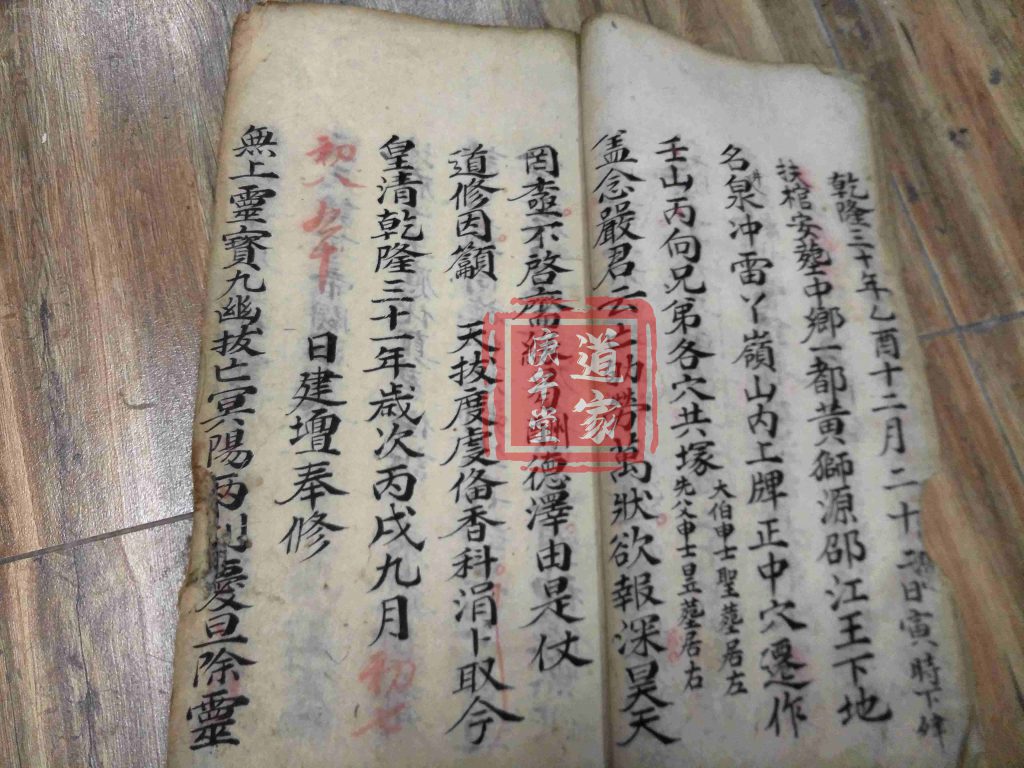 乾隆三十年乙酉十二月二十日寅時下肂
扶棺安塟中鄉一都黃獅源邵江王下地
名泉冲雷丫嶺山内上牌正中穴遷作
壬山丙向兄弟各穴共塚
大伯申士聖塟居左
先父申士昱墓居右
盖念嚴君云亡劬勞萬狀欲報深昊天
罔壺不啓齋酬德澤由是仗
道修因籲 天拔度虔備香科涓卜取今
皇清乾隆三十一年歲次丙戌九月
初七
初八
日建壇奉修
無上靈寶九幽拔亡冥陽兩利慶旦除靈
道家
庚名堂